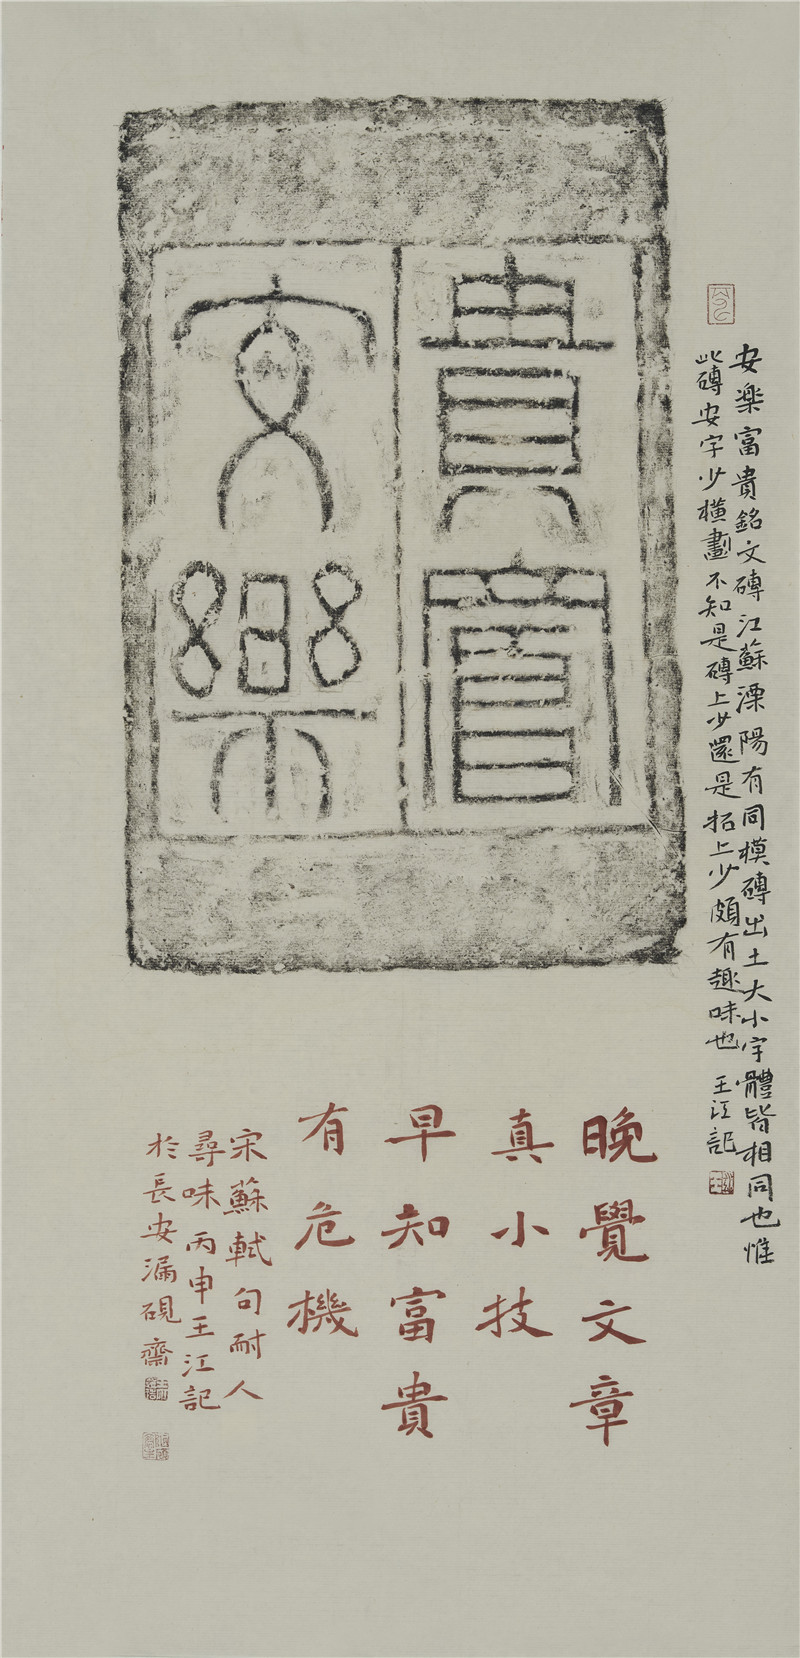 安楽富貴銘文磚江蘇溧陽有同模磚出土大小字體皆相同也惟
此磚安字少横劃不知是磚上少還是拓上少頗有趣味也 王江記
貴富
安樂
晚覺文章
真小技
早知富貴
有危機
宋蘇軾句耐人
尋味丙申王江記
於長安漏硯齋